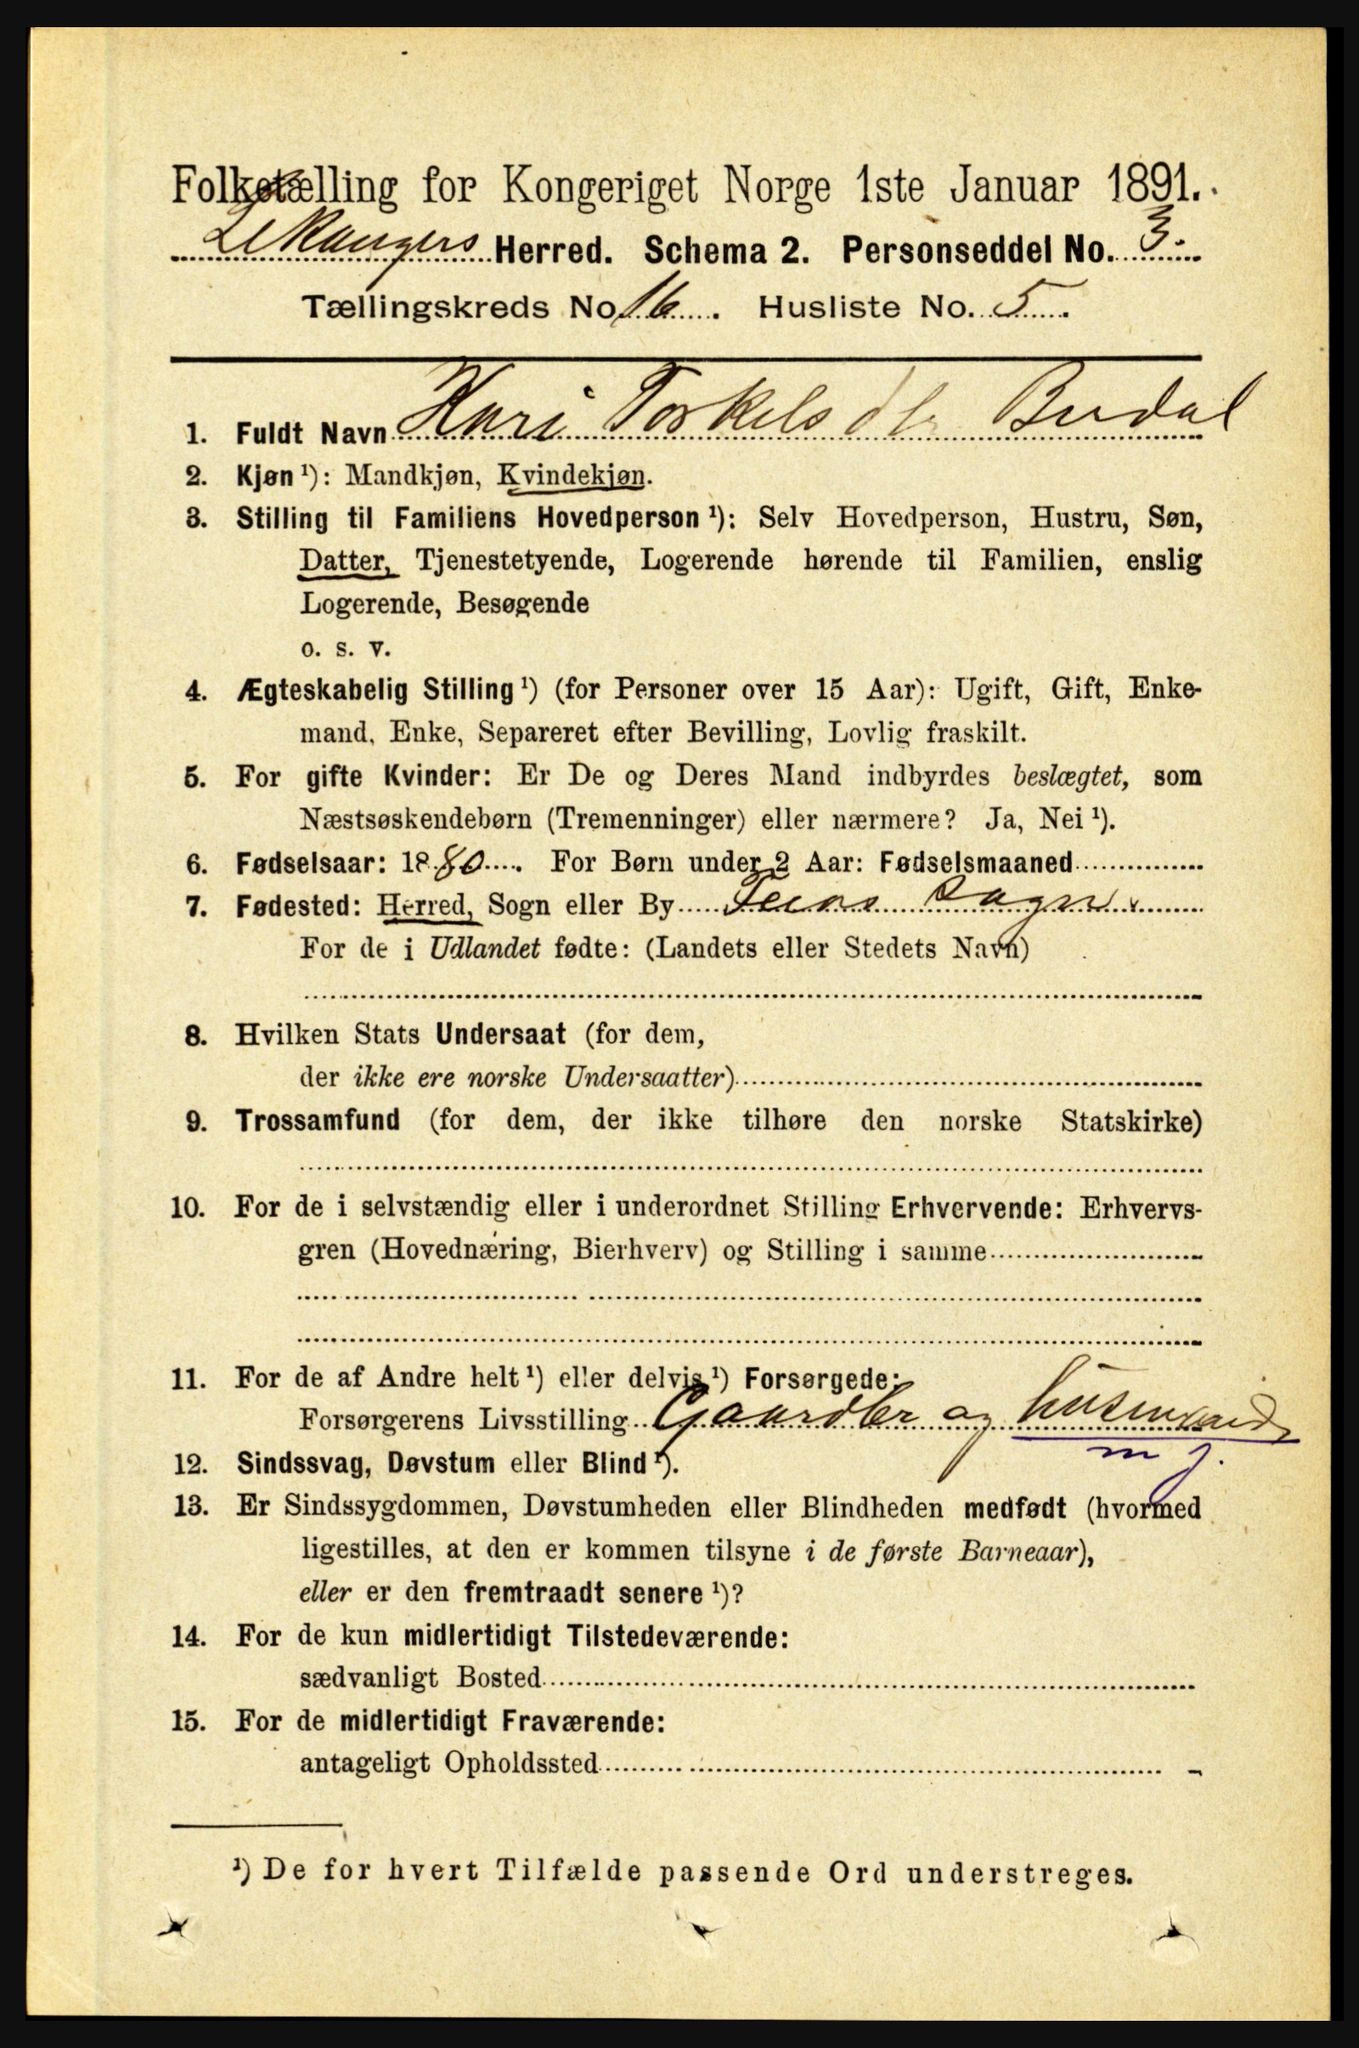 Folketælling for Kongeriget Norge 1ste Januar 1891.
Lekangers Herred. Schema 2. Personseddel No. 3.
Tællingskreds No. 16. Husliste No. 5.
1. Fuldt Navn Kari Torkelsdtr Berdal
2. Kjøn ¹): Mandkjøn, Kvindekjøn.
3. Stilling til Familiens Hovedperson ¹): Selv Hovedperson, Hustru, Søn,
Datter, Tjenestetyende, Logerende hørende til Familien, enslig
Logerende, Besøgende
o. s. v.
4. Ægteskabelig Stilling ¹) (for Personer over 15 Aar): Ugift, Gift, Enke-
mand, Enke, Separeret efter Bevilling, Lovlig fraskilt.
5. For gifte Kvinder: Er De og Deres Mand indbyrdes beslægtet, som
Næstsøskendebørn (Tremenninger) eller nærmere? Ja, Nei ¹).
6. Fødselsaar: 1880. For Børn under 2 Aar: Fødselsmaaned
7. Fødested: Herred, Sogn eller By Feios Sogn
For de i Udlandet fødte: (Landets eller Stedets Navn)
8. Hvilken Stats Undersaat (for dem,
der ikke ere norske Undersaatter)
9. Trossamfund (for dem, der ikke tilhøre den norske Statskirke)
10. For de i selvstændig eller i underordnet Stilling Erhvervende: Erhvervs-
gren (Hovednæring, Bierhverv) og Stilling i samme
11. For de af Andre helt ¹) eller delvis ¹) Forsørgede:
Forsørgerens Livsstilling Gaardbr og husmand
m j.
12. Sindssvag, Døvstum eller Blind ¹).
13. Er Sindssygdommen, Døvstumheden eller Blindheden medfødt (hvormed
ligestilles, at den er kommen tilsyne i de første Barneaar),
eller er den fremtraadt senere ¹)?
14. For de kun midlertidigt Tilstedeværende:
sædvanligt Bosted
15. For de midlertidigt Fraværende:
antageligt Opholdssted
¹) De for hvert Tilfælde passende Ord understreges.